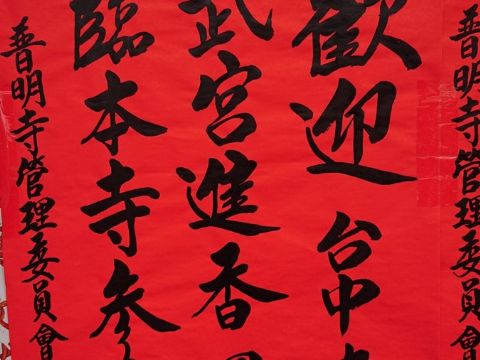 普明寺管理委員會
歡迎台中
武宮進香
臨本寺參
普明寺管理委員會